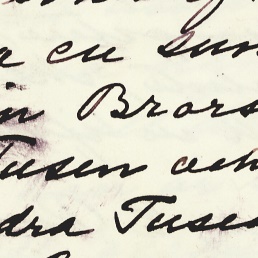 en sum
in Brors
Tusen och
dra Tuse